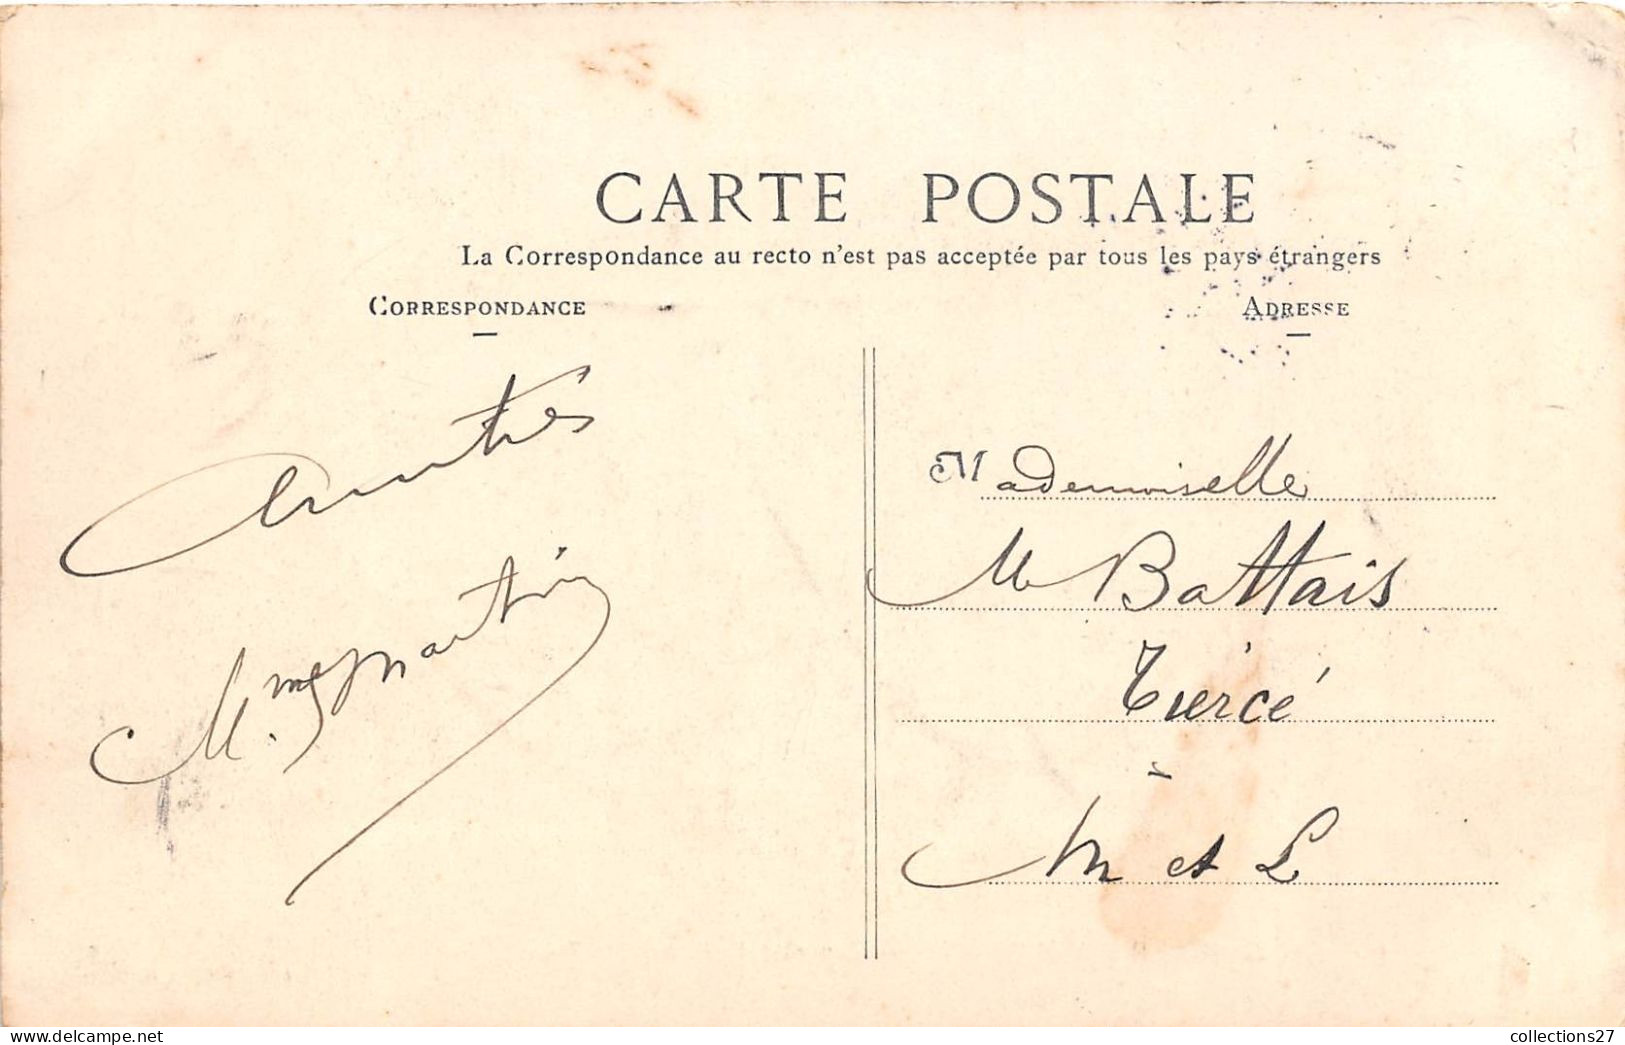 CARTE POSTALE
La Correspondance au recto n'est pas acceptée par tous les pays étrangers
CORRESPONDANCE
ADRESSE
Amitiés
M. Martin
Mademoiselle
M Battais
Tiercé
M et L
www.delcampe.net
collections27